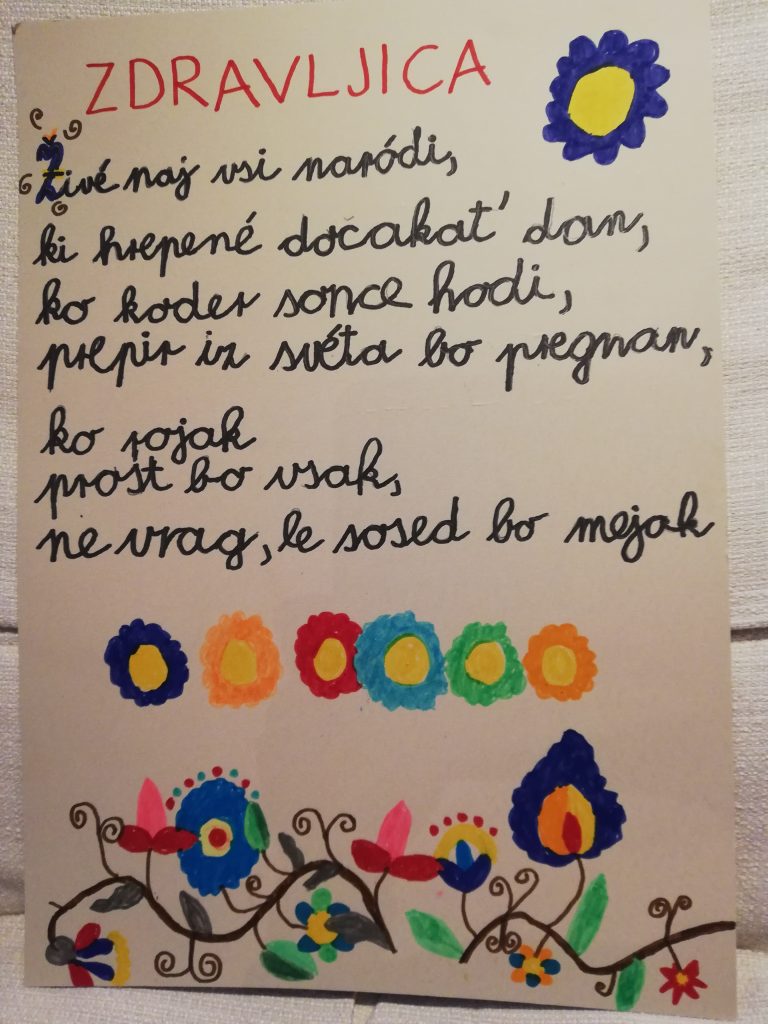 ZDRAVLJICA
Živé naj vsi naródi,
ki hrepené dočakat' dan,
ko koder sonce hodi,
prepir iz svéta bo pregnan,
ko rojak
prost bo vsak,
ne vrag, le sosed bo mejak